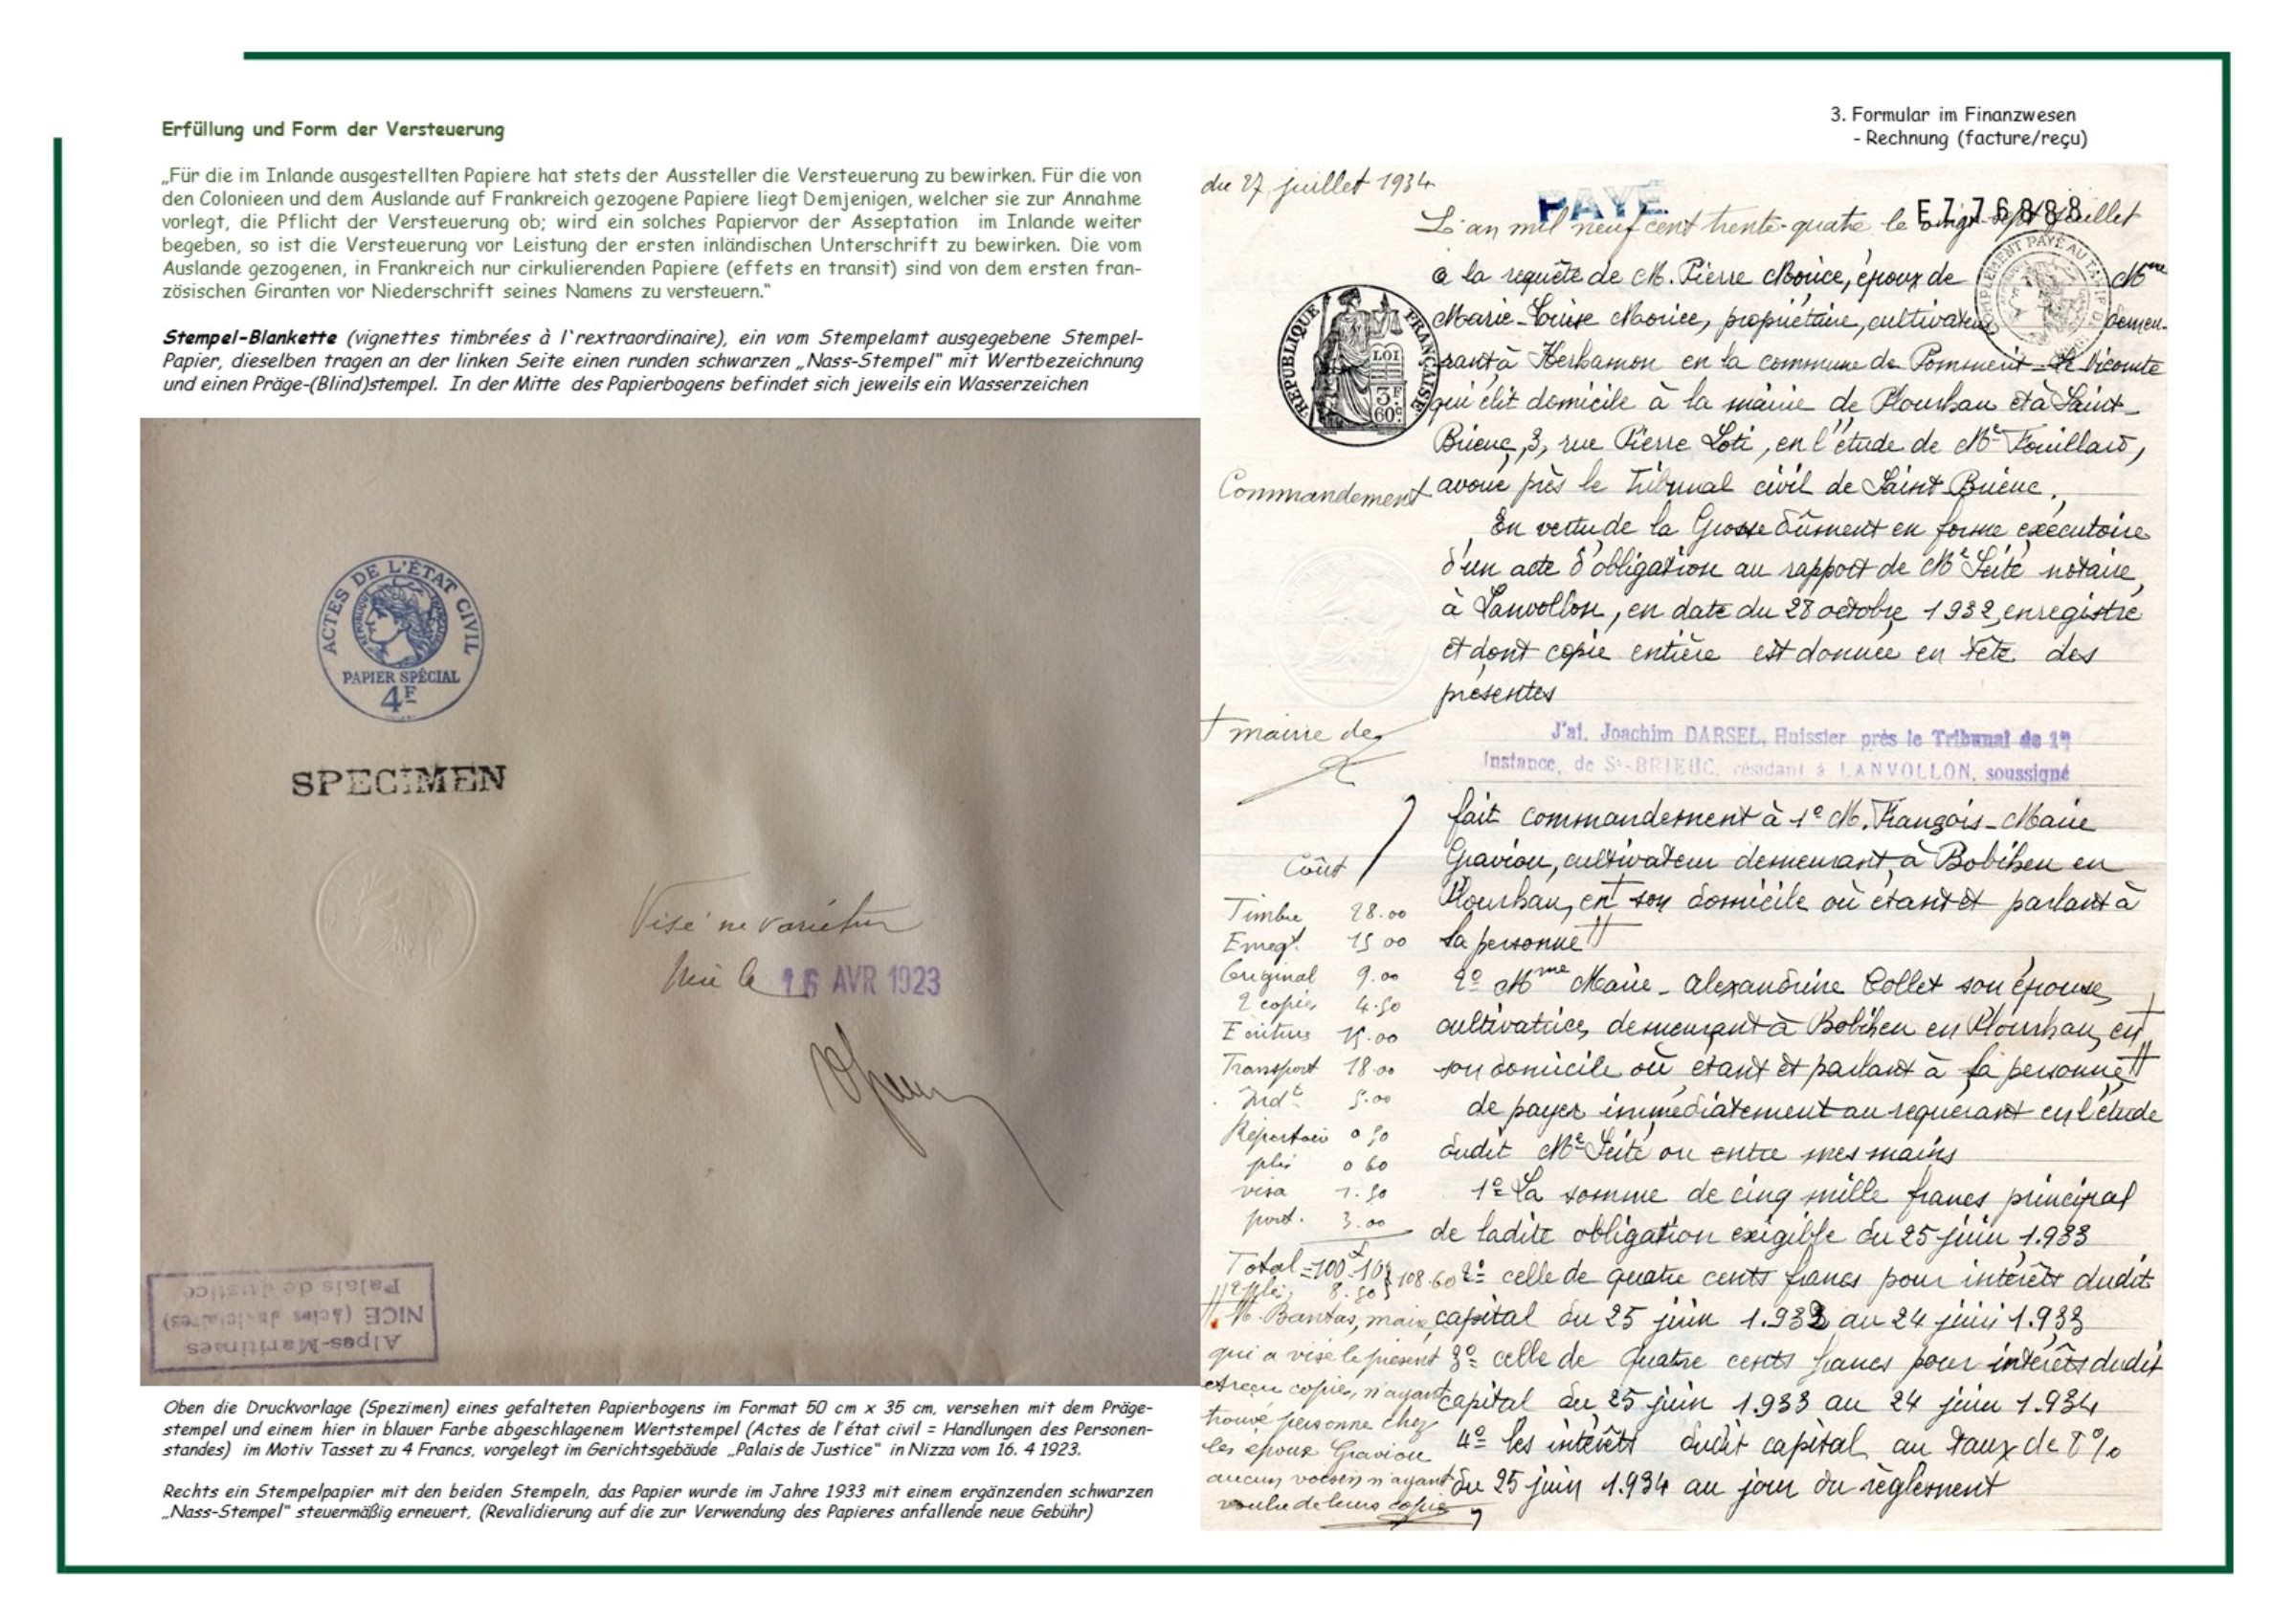 Erfüllung und Form der Versteuerung
3. Formular im Finanzwesen
- Rechnung (facture/reçu)
„Für die im Inlande ausgestellten Papiere hat stets der Aussteller die Versteuerung zu bewirken. Für die von
den Colonieen und dem Auslande auf Frankreich gezogene Papiere liegt Demjenigen, welcher sie zur Annahme
vorlegt, die Pflicht der Versteuerung ob; wird ein solches Papiervor der Asseptation im Inlande weiter
begeben, so ist die Versteuerung vor Leistung der ersten inländischen Unterschrift zu bewirken. Die vom
Auslande gezogenen, in Frankreich nur cirkulierenden Papiere (effets en transit) sind von dem ersten fran-
zösischen Giranten vor Niederschrift seines Namens zu versteuern.“
Stempel-Blankette (vignettes timbrées à l`rextraordinaire), ein vom Stempelamt ausgegebene Stempel-
Papier, dieselben tragen an der linken Seite einen runden schwarzen „Nass-Stempel“ mit Wertbezeichnung
und einen Präge-(Blind)stempel. In der Mitte des Papierbogens befindet sich jeweils ein Wasserzeichen
ACTES DE L'ÉTAT CIVIL
RÉPUBLIQUE FRANÇAISE
PAPIER SPÉCIAL
4F
SPECIMEN
Visé ne varietur
le 16 AVR 1923
Alpes-Maritimes
NICE (Actes Judiciaires)
Palais de Justice
Oben die Druckvorlage (Spezimen) eines gefalteten Papierbogens im Format 50 cm x 35 cm, versehen mit dem Präge-
stempel und einem hier in blauer Farbe abgeschlagenem Wertstempel (Actes de l'état civil = Handlungen des Personen-
standes) im Motiv Tasset zu 4 Francs, vorgelegt im Gerichtsgebäude „Palais de Justice“ in Nizza vom 16. 4 1923.
Rechts ein Stempelpapier mit den beiden Stempeln, das Papier wurde im Jahre 1933 mit einem ergänzenden schwarzen
„Nass-Stempel“ steuermäßig erneuert, (Revalidierung auf die zur Verwendung des Papieres anfallende neue Gebühr)
du 27 juillet 1934
PAYÉ
E776888
L'an mil neuf cent trente-quatre le vingt-sept juillet
à la requête de M. Pierre Morice, époux de Mme
Marie-Louise Morice, propriétaire, cultivateur, demeu-
rant à Kerhamon en la commune de Pommerit-le-Vicomte
qui élit domicile à la mairie de Plourhan et à Saint-
Brieuc, 3, rue Pierre Loti, en l'étude de Me Fouillard,
avoué près le Tribunal civil de Saint-Brieuc.
COMPLÉMENT PAYÉ AU TARIF DE
RÉPUBLIQUE FRANÇAISE
LOI
3F
60c
Commandement
En vertu de la Grosse dûment en forme exécutoire
d'un acte d'obligation au rapport de Me Seité notaire,
à Lanvollon, en date du 28 octobre 1932, enregistré
et dont copie entière est donnée en tête des
présentes
J'ai, Joachim DARSEL, Huissier près le Tribunal de 1re
Instance, de St-BRIEUC, résidant à LANVOLLON, soussigné
fait commandement à 1º M. François-Marie
Graviou, cultivateur demeurant à Bobihen en
Plourhan, en son domicile où étant et parlant à
sa personne
2º Mme Marie-Alexandrine Collet son épouse,
cultivatrice, demeurant à Bobihen en Plourhan, en
son domicile où étant et parlant à sa personne
de payer immédiatement au requérant en l'étude
dudit Me Seité ou entre mes mains
1º La somme de cinq mille francs principal
de ladite obligation exigible du 25 juin 1.933
2º celle de quatre cents francs pour intérêts dudit
capital du 25 juin 1.932 au 24 juin 1.933
3º celle de quatre cents francs pour intérêts dudit
capital du 25 juin 1.933 au 24 juin 1.934
4º les intérêts dudit capital au taux de 8%
du 25 juin 1.934 au jour du règlement
mairie de
Coût
Timbre 28.00
Enregt. 15 00
Original 9.00
2 copies 4.50
Ecriture 15.00
Transport 18 00
5.00
Répertoire 0 50
plis 0 60
visa 1.50
port. 3.00
Total = 100f 10
8.50 108.60
M. Bantas, maire,
qui a visé le présent
et reçu copie, n'ayant
trouvé personne chez
les époux Graviou
aucun voisin n'ayant
voulu de leurs copies